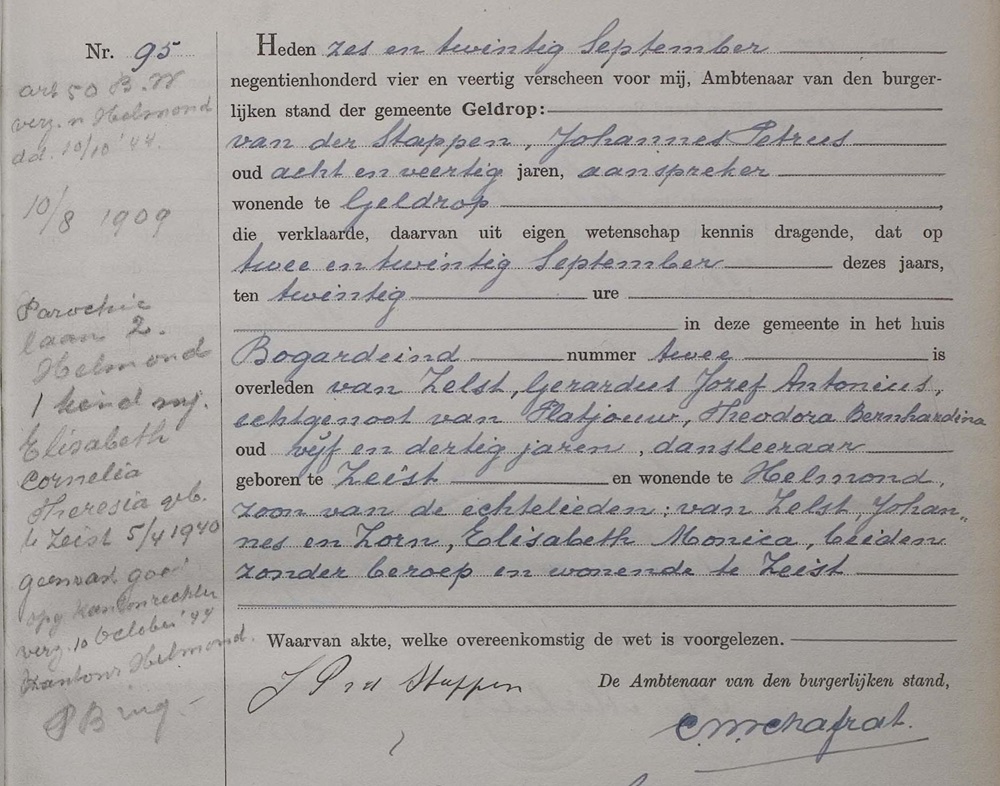 Nr. 95
art 50 B.W
verz. n Helmond
dd. 10/10 '44.
10/8 1909
Parochie
laan 2.
Helmond
1 kind mj.
Elisabeth
Cornelia
Theresia geb.
te Zeist 5/4 1940
opg kantonrechter
verz. 10 October '44
Kantonr Helmond.
Heden zes en twintig September
negentienhonderd vier en veertig verscheen voor mij, Ambtenaar van den burger-
lijken stand der gemeente Geldrop:
van der Stappen, Johannes Petrus
oud acht en veertig jaren, aanspreker
wonende te Geldrop,
die verklaarde, daarvan uit eigen wetenschap kennis dragende, dat op
twee en twintig September dezes jaars,
ten twintig ure
in deze gemeente in het huis
Bogardeind nummer twee is
overleden van Zelst, Gerardus Jozef Antonius,
echtgenoot van Platjouw, Theodora Bernhardina
oud vijf en dertig jaren, dansleeraar
geboren te Zeist en wonende te Helmond,
zoon van de echtelieden: van Zelst, Johan„
nes en Zorn, Elisabeth Monica, beiden
zonder beroep en wonende te Zeist
Waarvan akte, welke overeenkomstig de wet is voorgelezen.
J P vd Stappen
De Ambtenaar van den burgerlijken stand,